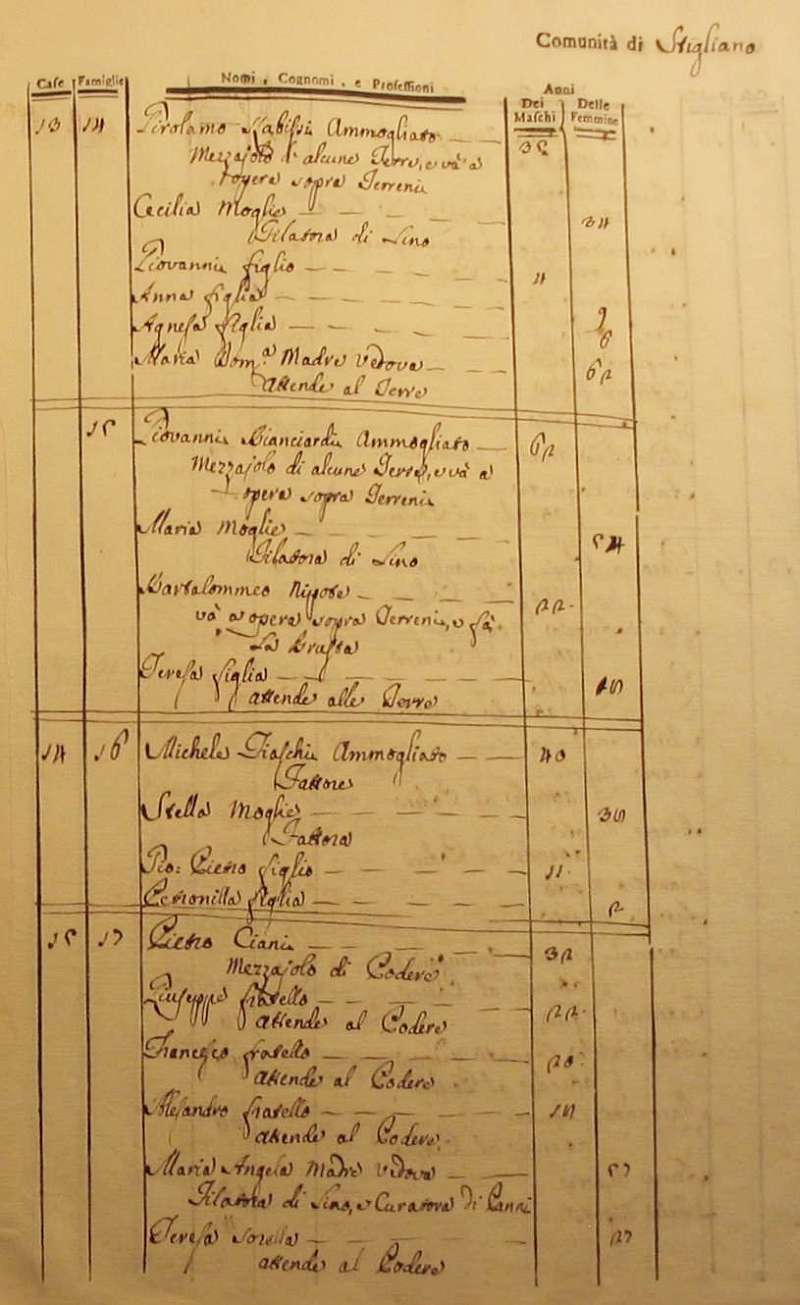 Comunità di Stigliano
Case Famiglie Nomi, Cognomi, e Professioni Anni
Dei Maschi Delle Femmine
13 14 Girolamo Ammogliato 35
Mezzajolo d'alcune Terre, e và a
sopra Terreni
Cecilia Moglie 34
Filatora di Lino
Giovanni figlio 4
Anna figlia
Agnesa figlia 6
Maria Dom.ca Madre Vedova 62
attende al Terre
15 Giovanni Bianciardi Ammogliato 62
Mezzajolo di alcune Terre, e và a
opera sopra Terreni
Maria Moglie 54
Filatora di Lino
Bartolommeo Nipote 22
và a opera sopra Terreni, e fà
Teresa figlia
attende alle Terre
14 16 Michele Ammogliato 40
Fattore
Stella Moglie 35
Fattora
Gio: Pietro figlio 11
Petronilla figlia 2
15 17 Pietro Ciani 32
Mezzajolo di Podere
Giuseppe fratello 22
attende al Podere
Francesco fratello 20
attende al Podere
Alesandro fratello 14
attende al Podere
Maria Angela Madre Vedova 57
Filatora di Lino, e Curatora di Panni
Teresa sorella 27
attende al Podere